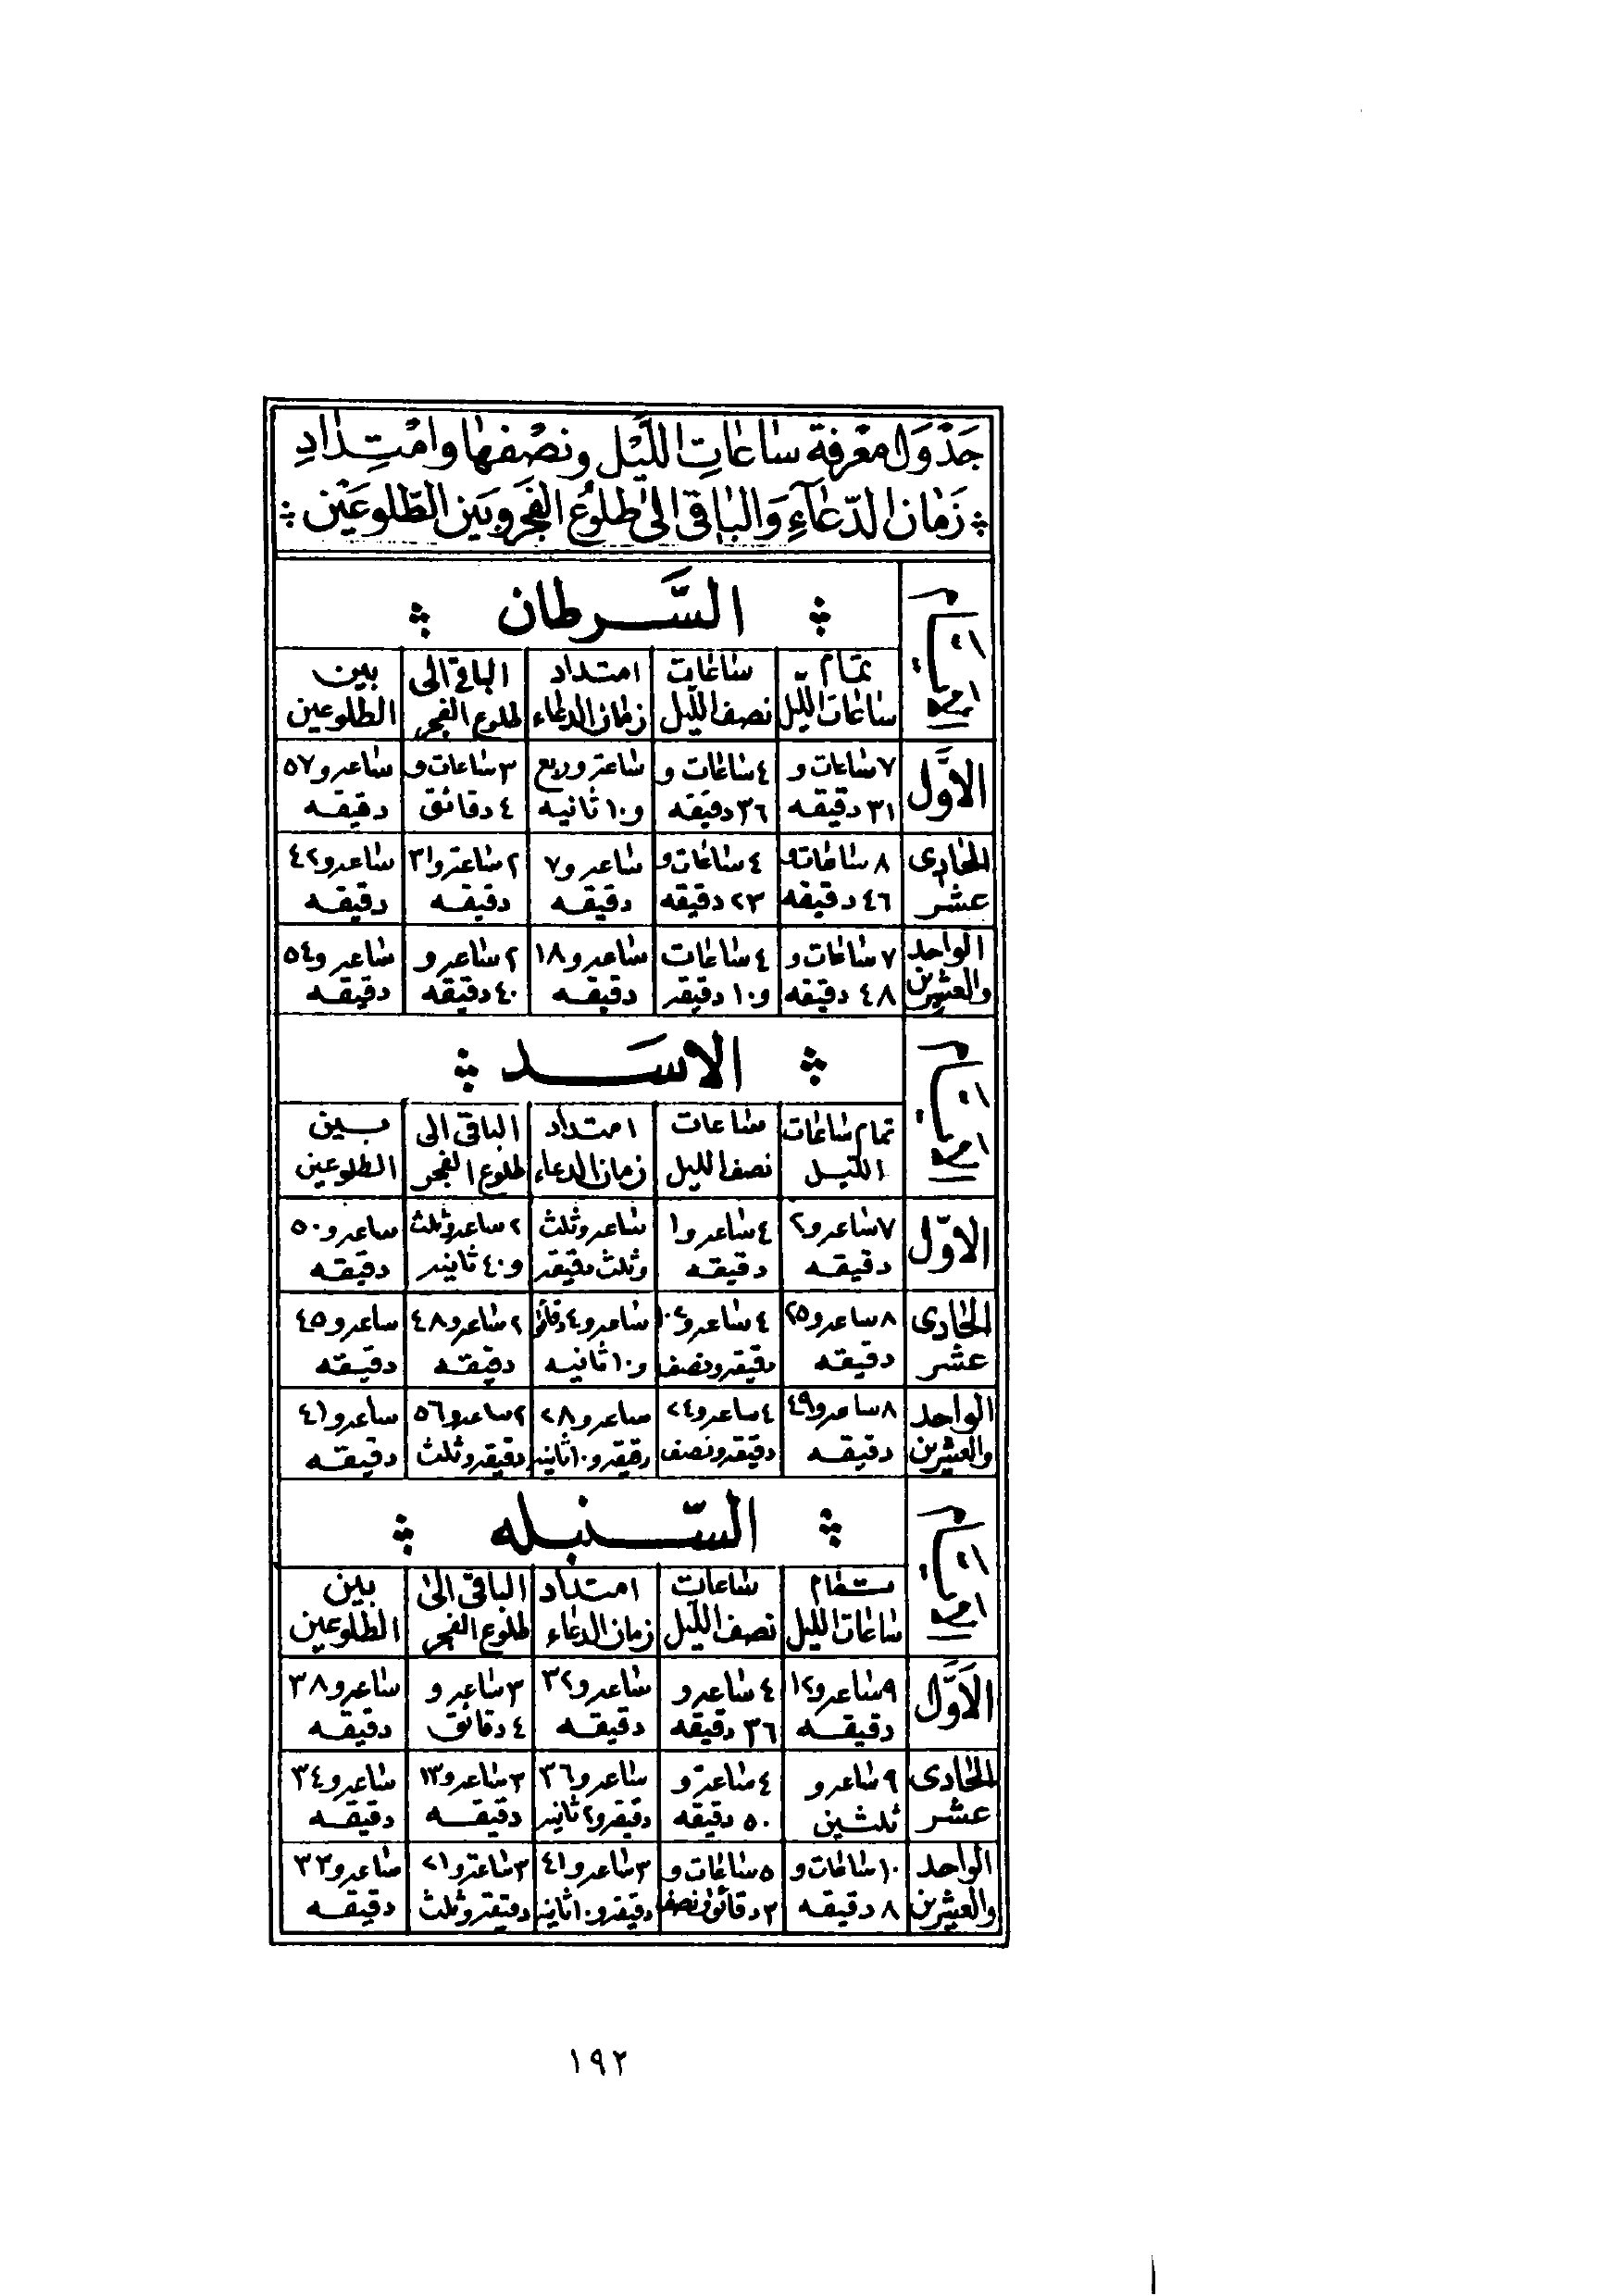 جَدْوَل مَعْرِفَة سَاعَاتِ اللَّيْل ونصْفِهَا وامْتِدَادِ
زَمَان الدّعَآءِ وَالبَاقى الىٰ طلوُع الفَجَر وبَين الطّلوعَيْن
السَّرطان
تمام ساعات الليل | ساعات نصف الليل | امتداد زمان الدعاء | الباقى الى طلوع الفجر | بين الطلوعين
الاوّل | ٧ ساعات و ٣١ دقيقه | ٤ ساعات و ٣٦ دقيقه | ساعة وربع و١٠ ثانيه | ٣ ساعات و ٤ دقائق | ساعه و٥٧ دقيقه
الحادى عشر | ٨ ساعات و ٤٦ دقيقه | ٤ ساعات و ٢٣ دقيقه | ساعه و٧ دقيقه | ٢ ساعة و٣١ دقيقه | ساعه و٤٢ دقيقه
الواحد والعشرين | ٧ ساعات و ٤٨ دقيقه | ٤ ساعات و١٠ دقيقه | ساعه و١٨ دقيقه | ٢ ساعه و ٤٠ دقيقه | ساعه و٥٤ دقيقه
الاسَد
تمام ساعات الليل | ساعات نصف الليل | امتداد زمان الدعاء | الباقى الى طلوع الفجر | بين الطلوعين
الاوّل | ٧ ساعه و٢ دقيقه | ٤ ساعه و١ دقيقه | ساعه وثلث وثلث دقيقه | ٢ ساعه وثلث و٤٠ ثانيه | ساعه و٥٠ دقيقه
الحادى عشر | ٨ ساعه و٢٥ دقيقه | ٤ ساعه و دقيقه ونصف | ساعه و٤ دقائق و١٠ ثانيه | ٢ ساعه و٤٨ دقيقه | ساعه و٤٥ دقيقه
الواحد والعشرين | ٨ ساعه و٤٩ دقيقه | ٤ ساعه و٢٤ دقيقه ونصف | ساعه و٢٨ دقيقه و١٠ ثانيه | ٢ ساعه و٥٦ دقيقه وثلث | ساعه و٤١ دقيقه
السّنبله
تمام ساعات الليل | ساعات نصف الليل | امتداد زمان الدعاء | الباقى الىٰ طلوع الفجر | بين الطلوعين
الاَوَّل | ٩ ساعه و١٢ دقيقه | ٤ ساعه و ٣٦ دقيقه | ساعه و٣٢ دقيقه | ٣ ساعه و ٤ دقائق | ساعه و٣٨ دقيقه
الحادى عشر | ٩ ساعه و ثلثين | ٤ ساعة و ٥٠ دقيقه | ساعه و٣٦ دقيقه و٢ ثانيه | ٣ ساعه و١٣ دقيقه | ساعه و٣٤ دقيقه
الواحد والعشرين | ١٠ ساعات و ٨ دقيقه | ٥ ساعات و ٣ دقائق ونصف | ٣ ساعه و٤١ دقيقه و١٠ ثانيه | ٣ ساعة و٢١ دقيقه وثلث | ساعه و٣٣ دقيقه
١٩٢